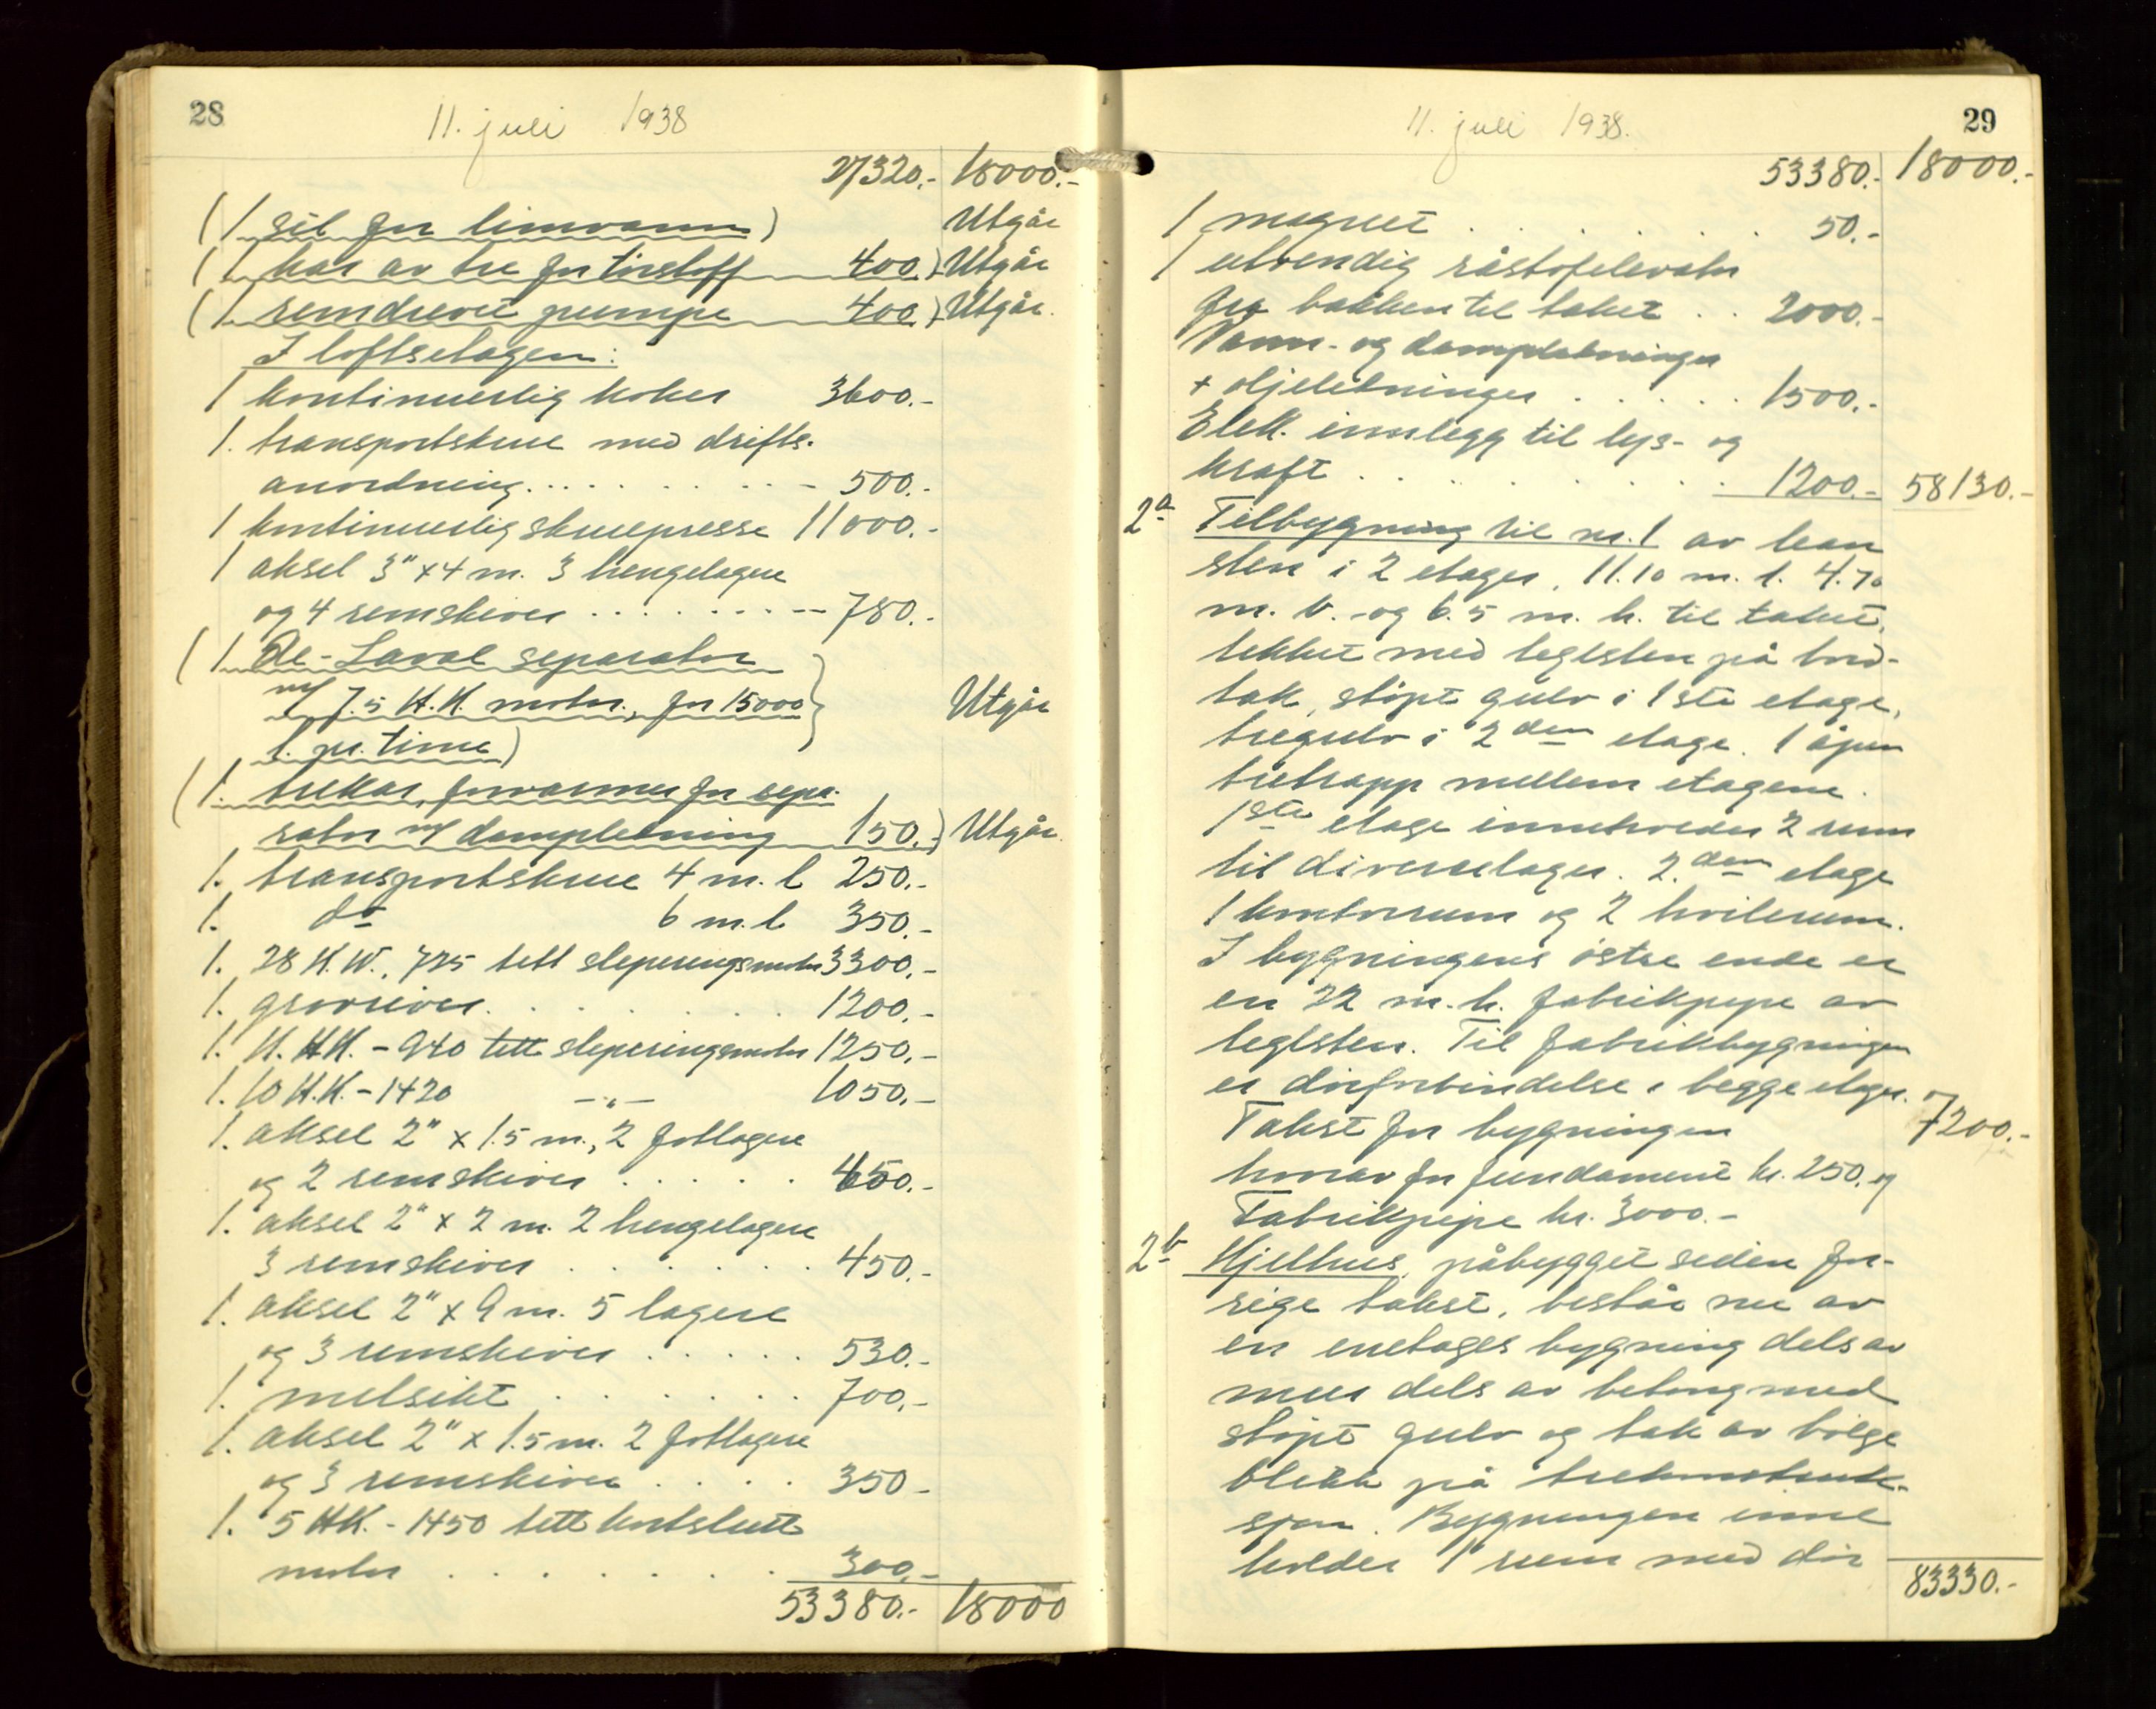 28
11. juli 1938
27320.- 18000.-
(1 sil for limvann) Utgår
(1 kar av tre for tørstoff 400.) Utgår
(1. remdrevet pumpe 400.) Utgår.
I loftsetagen:
1 kontinuerlig koker 3600.-
1. transportskrue med drifts-
anordning. . . . . . . . . 500.-
1 kontinuerlig skruepresse 11000.-
1 aksel 3" x 4 m. 3 hengelagere
og 4 remskiver . . . . . . . . 780.-
(1. De-Laval separator
m/ 7.5 H.K. motor, for 15000 Utgår
l. pr. time)
(1. trekar, forvarmer for sepa-
rator m/ dampledning 150.-) Utgår.
1. transportskrue 4 m. l 250.-
1. do 6 m. l. 350.-
1. 28 K.W., 725 tett sleperingsmotor 3300.-
1. grovriver. . . . . . . 1200.-
1. 11. H.K. - 940 tett sleperingsmotor 1250.-
1. 10 H.K. - 1420 -"- 1050.-
1. aksel 2" x 1.5 m., 2 fotlagere
og 2 remskiver . . . . . 450.-
1. aksel 2" x 2 m. 2 hengelagere
3 remskiver . . . . . . . 450.-
1. aksel 2" x 9 m. 5 lagere
og 3 remskiver . . . . . 530.-
1. melsikt . . . . . . . 700.-
1. aksel 2" x 1.5 m. 2 fotlagere
og 3 remskiver . . . . 350 -
1. 5 HK. - 1450 tett kortslutt
motor . . . . . . . . 300.-
53380.- 18000
29
11. juli 1938.
53380.- 18000.-
1 magnet . . . . . . . 50.-
1 utvendig råstofelevator
fra bakken til taket . . 2000.-
Vann- og dampledninger
+ oljeledninger . . . . . 1500.-
Elek. innlegg til lys- og
kraft . . . . . . . . . 1200.- 58130.-
2a Tilbygning til nr. 1 av betong
sten i 2 etager, 11.10 m. l. 4.70
m. b. og 6.5 m. h. til taket,
tekket med teglsten på bord-
tak, støpt gulv i 1ste etage,
tregulv i 2den etage. 1 åpen
tretrapp mellem etagene.
1ste etage inneholder 2 rum
til diverselager. 2.den etage
1 kontorrum og 2 hvilerum.
I bygningens østre ende er
en 22 m. h. fabrikpipe av
teglsten. Til fabrikbygningen
er dørforbindelse i begge etager.
Takst for bygningen 7200.-
hvorav for fundament kr. 250. og
Fabrikpipe kr. 3000.-
2b Kjelhus, påbygget siden for-
rige takst, består nu av
en enetages bygning dels av
mur dels av betong med
støpt gulv og tak av bølge
blikk på trekonstruk-
sjon. Bygningen inne
holder 1 rum med dør
83330.-